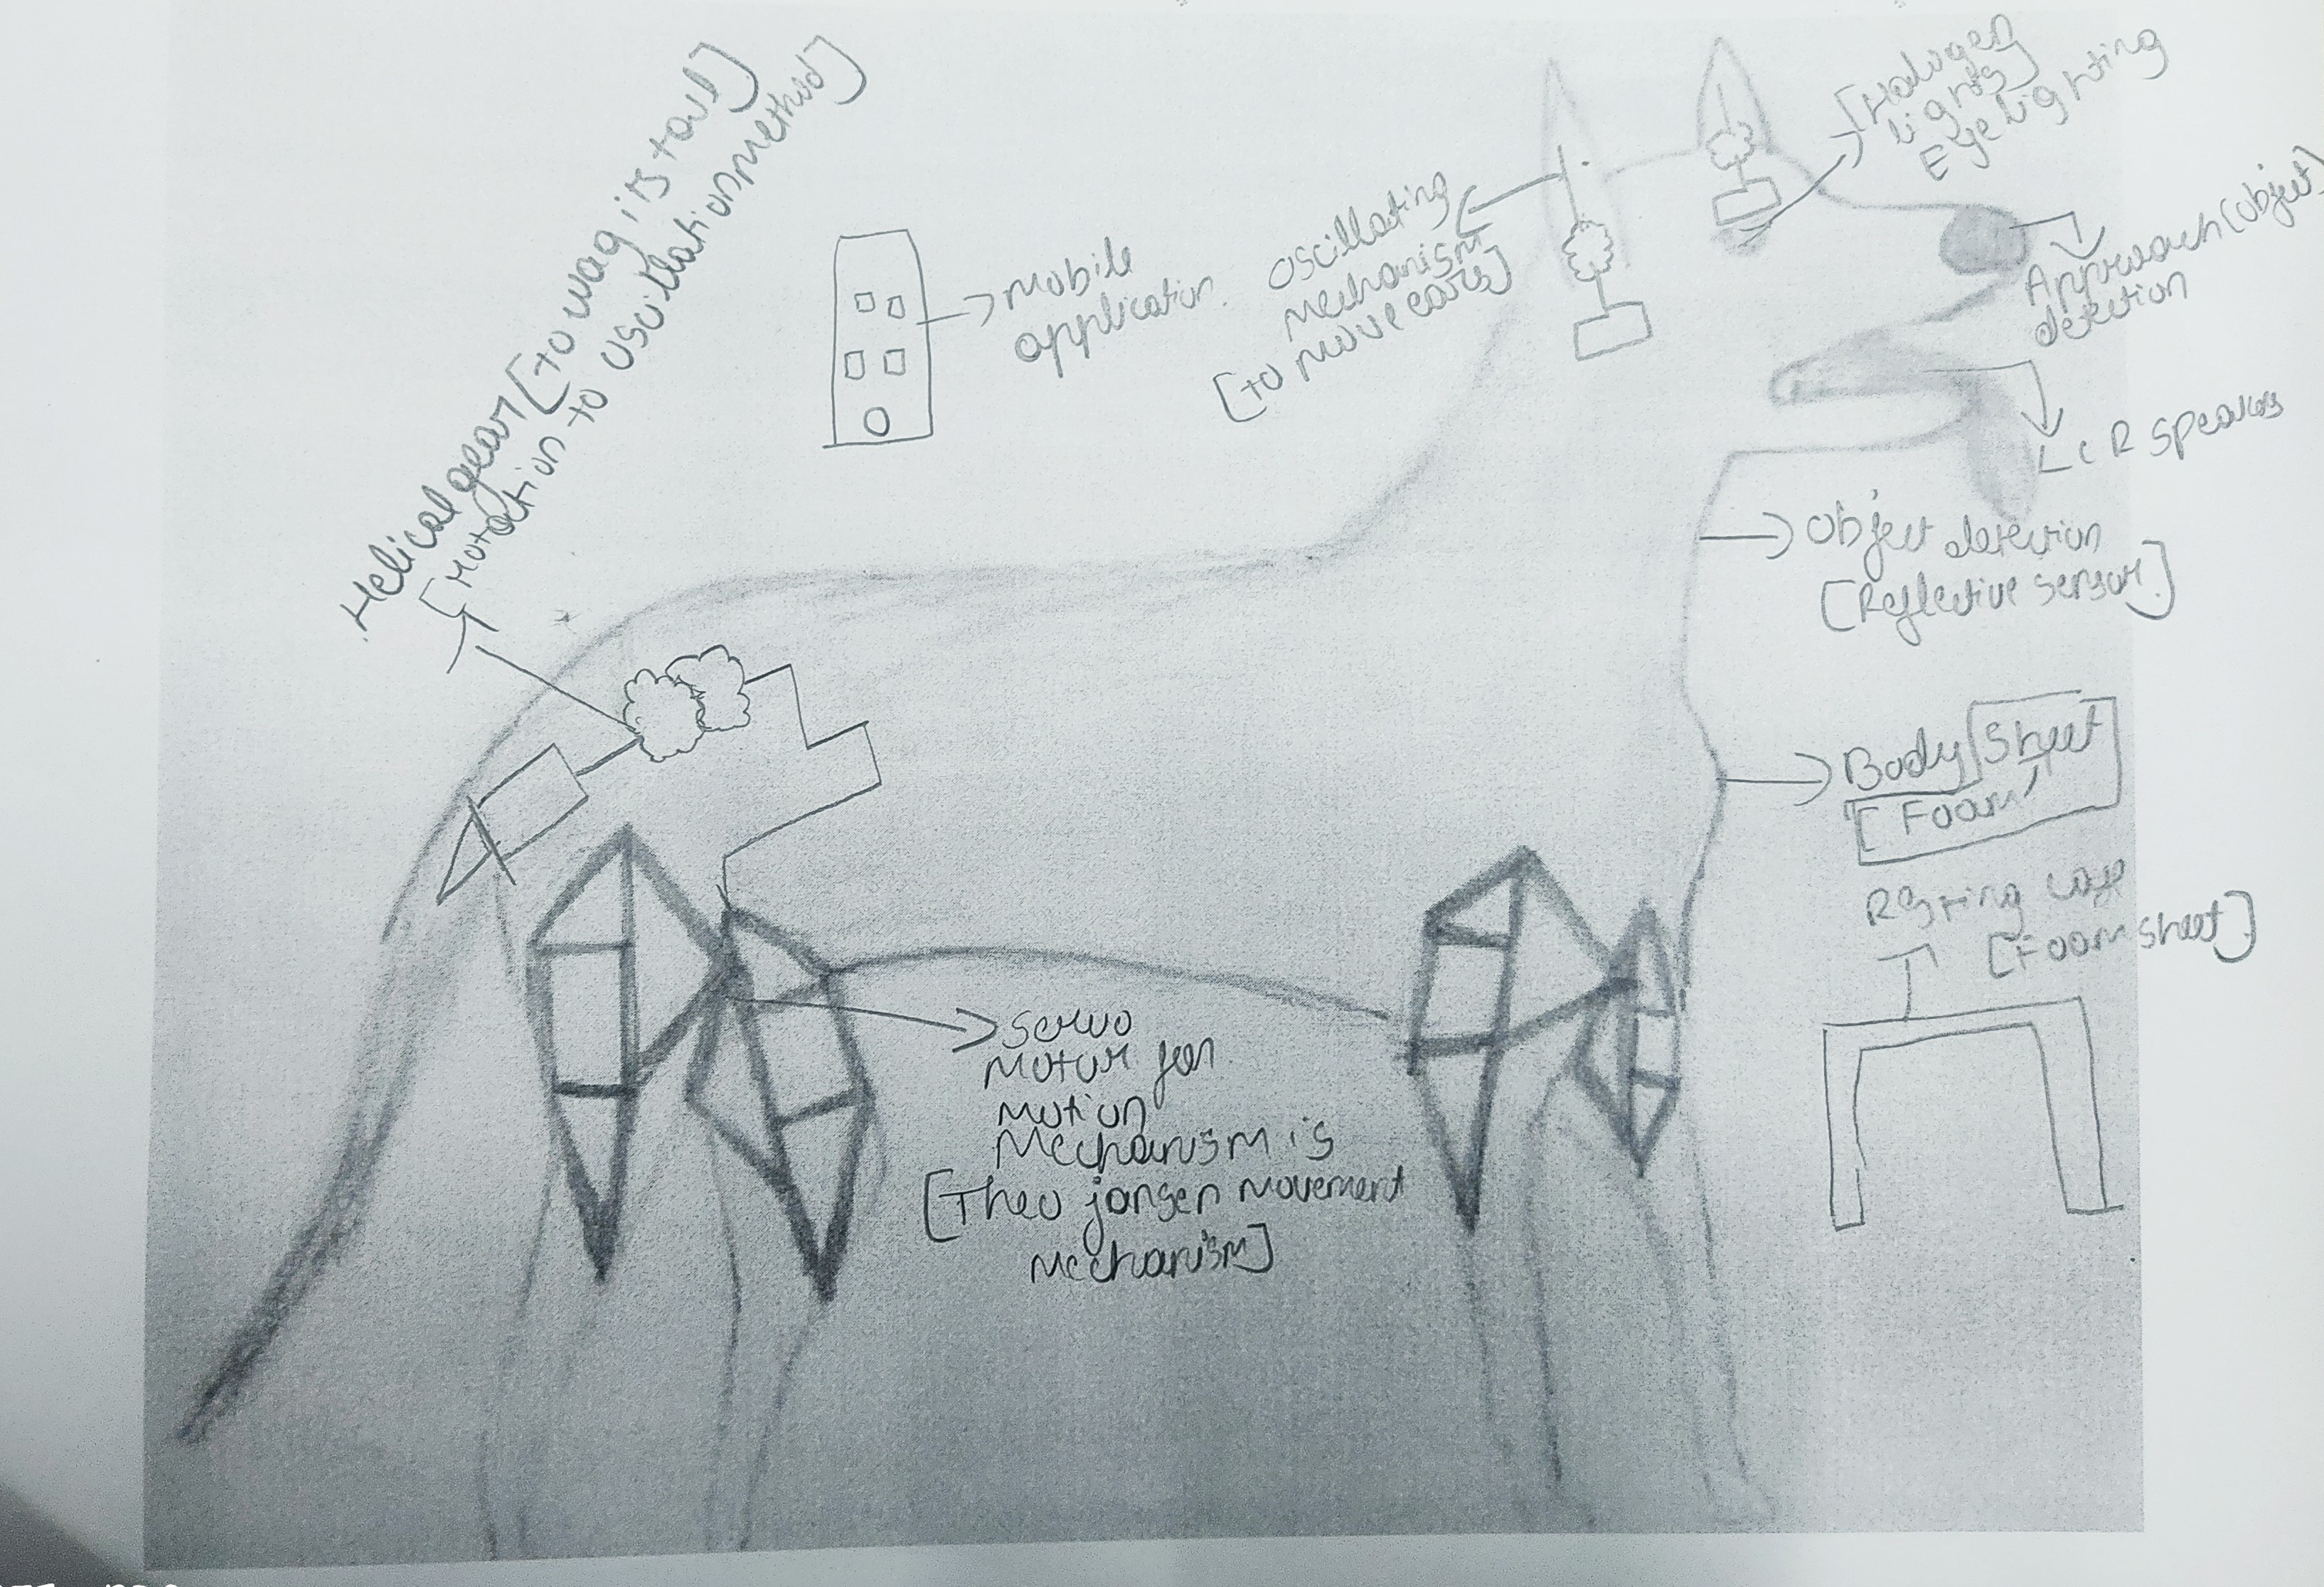 Helical gear [to wag its tail]
[Motoction to oscillation method]
Mobile
application.
oscillating
mechanism
[to move ears]
[Halogen
lights]
Eye lighting
Approach (object)
detection
LCR speakers
object detection
[Reflective sensor]
Body Sheet
[Foam]
Resting
[Foam sheet]
Servo
motor for
motion
Mechanism is
[Theo jansen movement
mechanism]